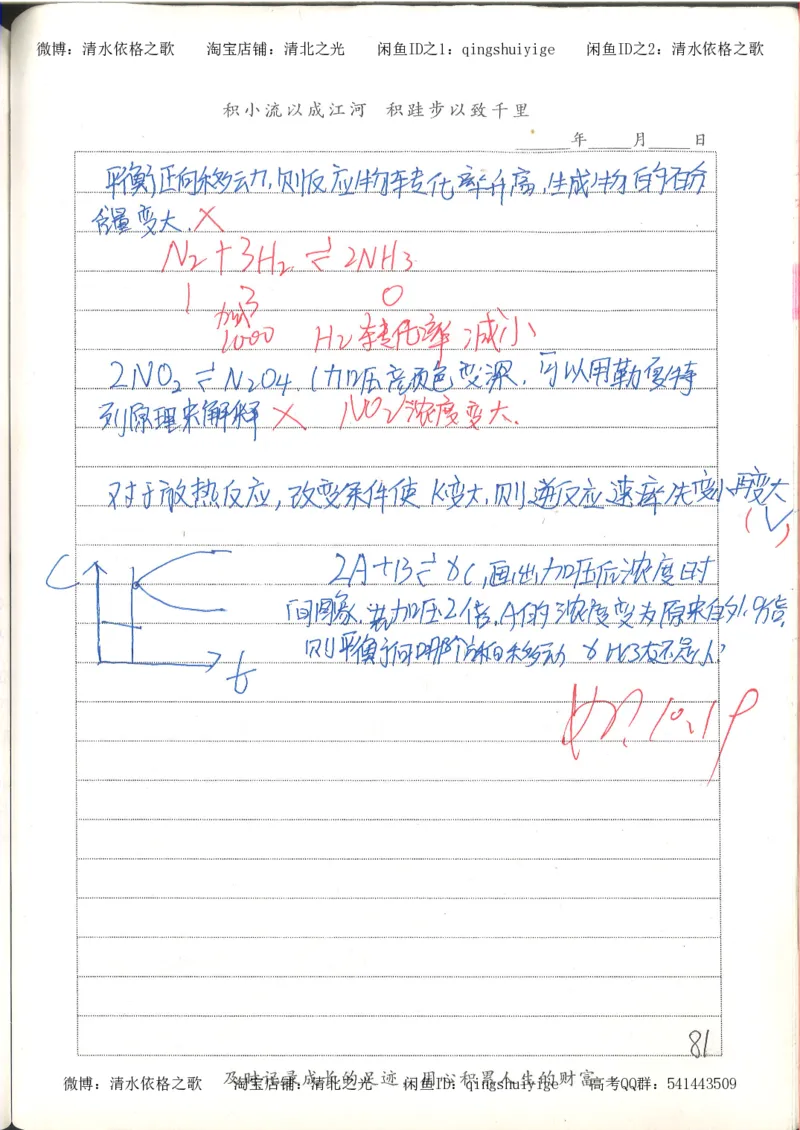 微博：清水依格之歌 淘宝店铺：清北之光 闲鱼ID之1：qingshuiyige 闲鱼ID之2：清水依格之歌
积小流以成江河 积跬步以致千里
年 月 日
平衡正向移动，则反应物转化率升高，生成物的百分
含量变大。×
N₂+3H₂⇌2NH₃
1 3 0
加
1000 H₂转化率减小
2NO₂⇌N₂O₄.（加压产颜色变深，可以用勒夏特
列原理来解释 × NO₂浓度变大.
对于放热反应，改变条件使K变大，则逆反应速率先变小再变大
(√)
C
2A+B⇌xC，画出加压后浓度时
间图象，若加压2倍，A的浓度变为原来的1.9倍，
则平衡向哪个方向移动 x比3大还是小？
t
10.19
81
及时记录成长的足迹，用心积累人生的财富
微博：清水依格之歌 淘宝店铺：清北之光 闲鱼ID：qingshuiyige 高考QQ群：541443509